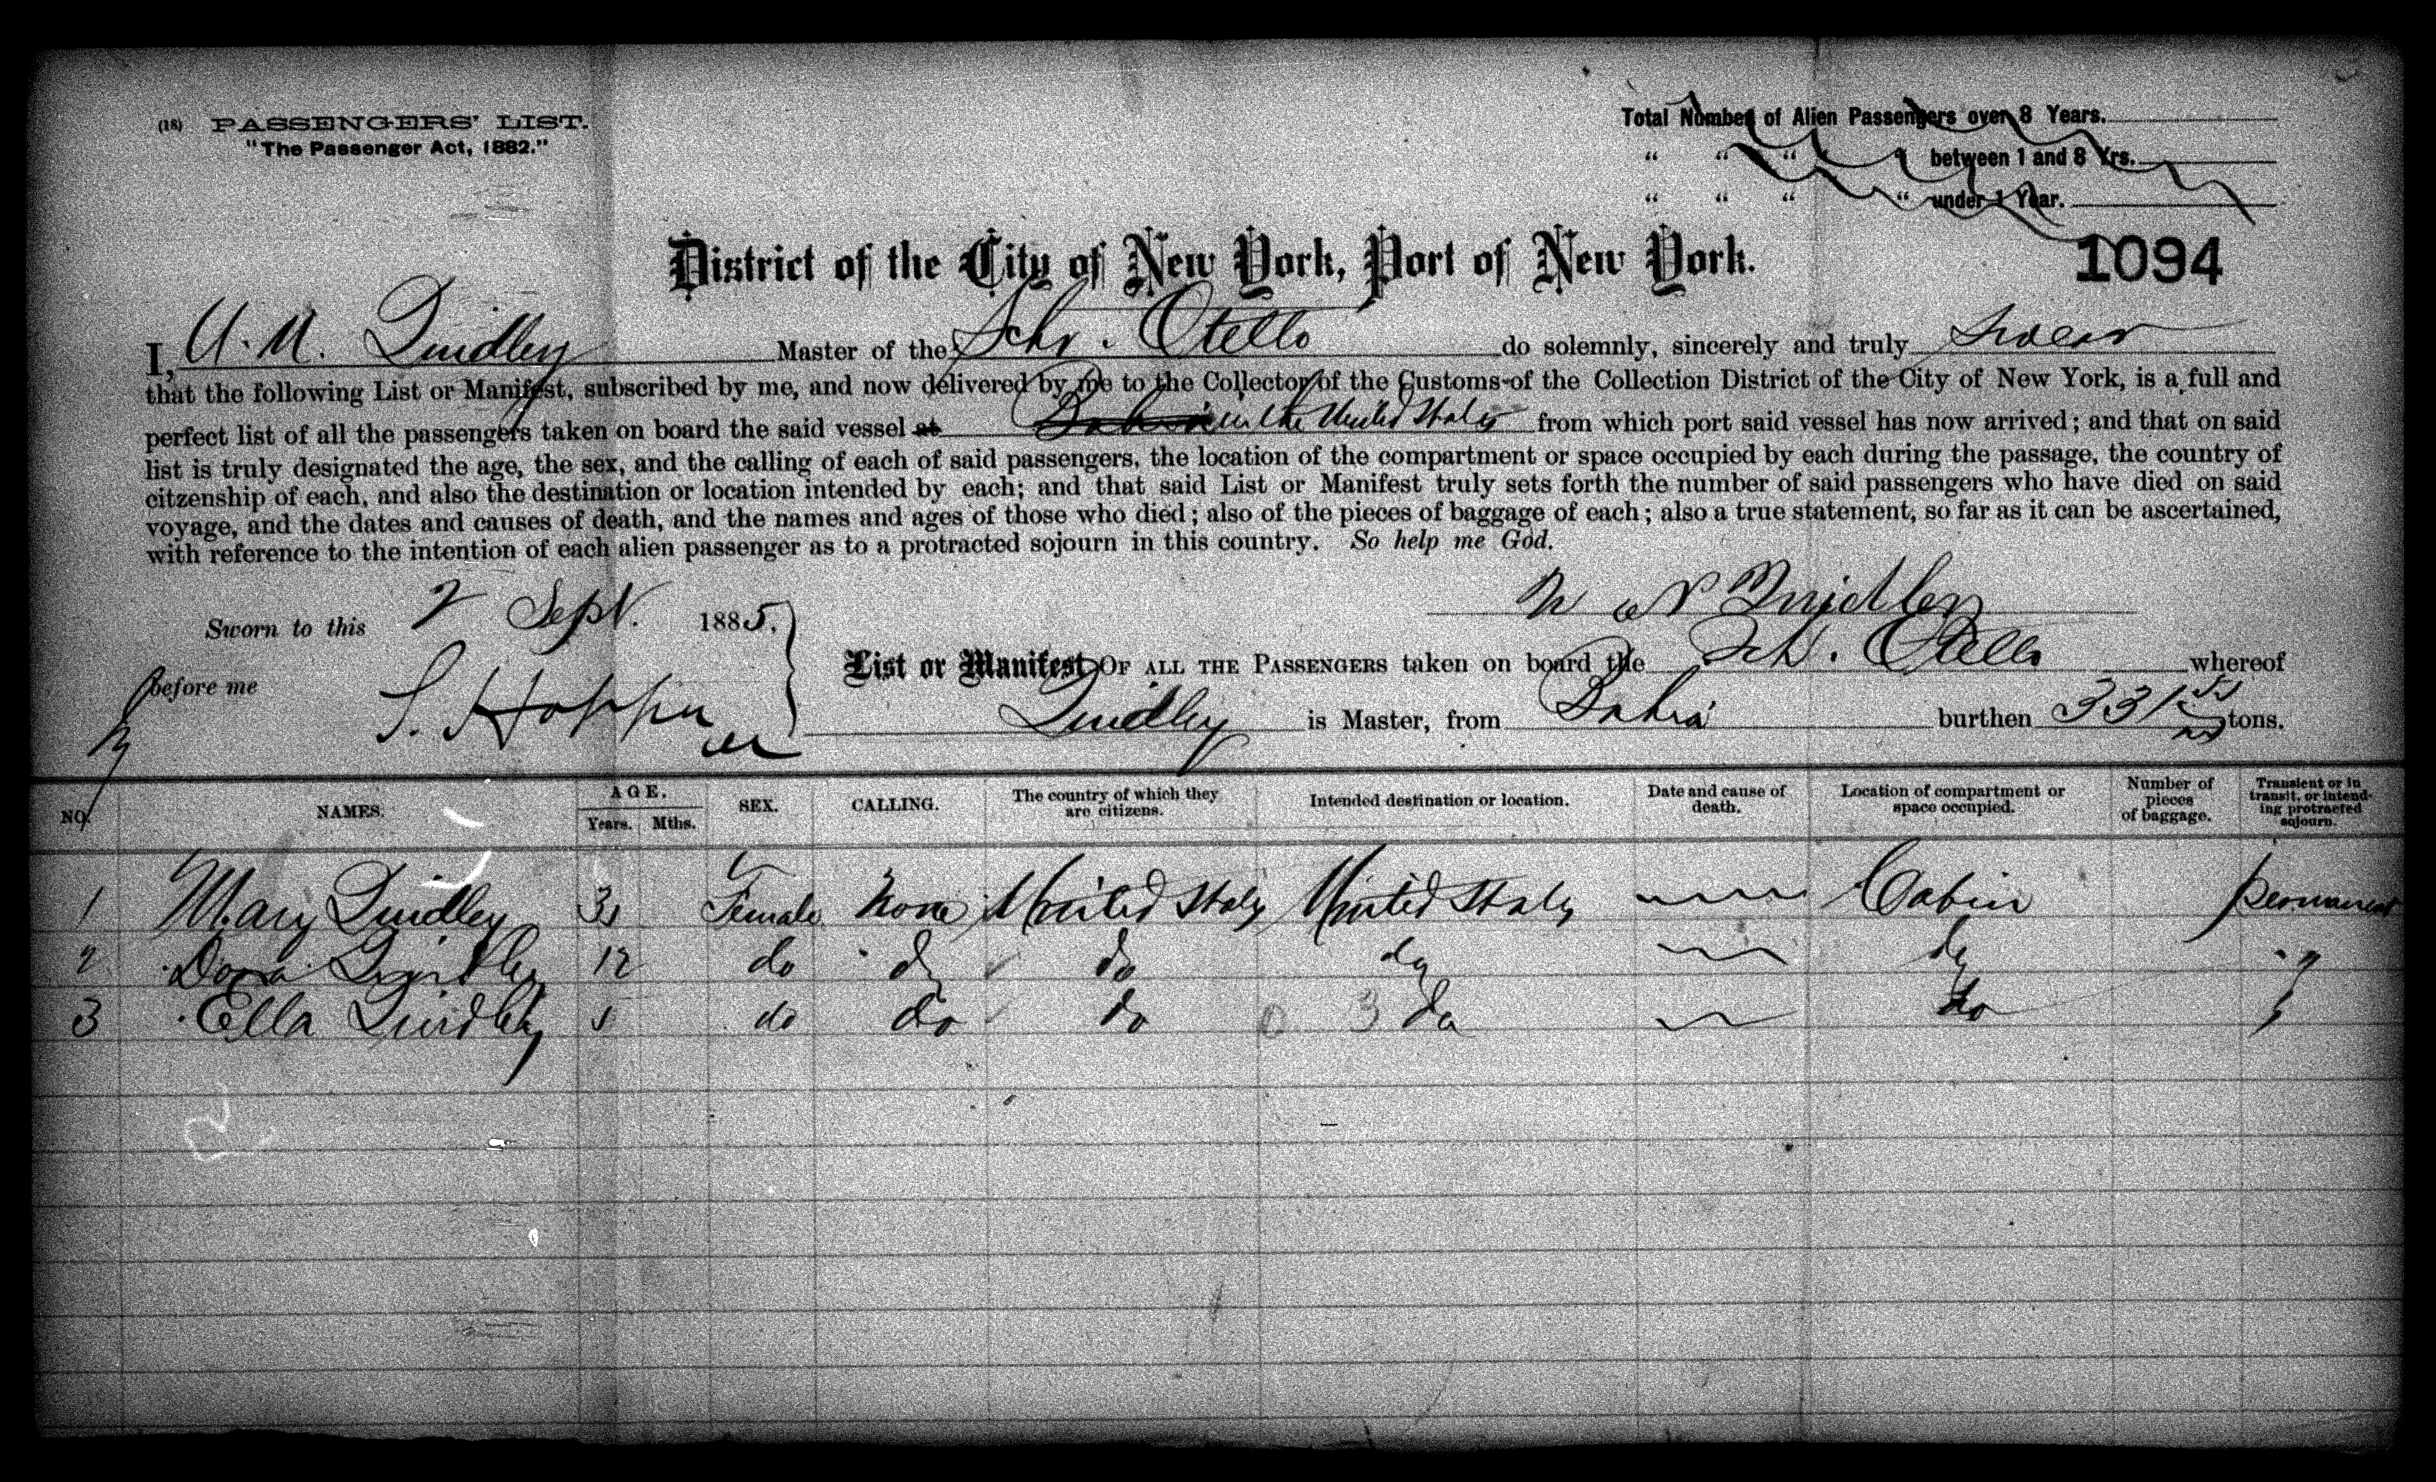 (18) PASSENGERS' LIST.
"The Passenger Act, 1882."
Total Number of Alien Passengers over 8 Years.
" " " " between 1 and 8 Yrs.
" " " " under 1 Year.
District of the City of New York, Port of New York.
1094
I, Lindley Master of the Schr. Otello do solemnly, sincerely and truly swear
that the following List or Manifest, subscribed by me, and now delivered by me to the Collector of the Customs of the Collection District of the City of New York, is a full and
perfect list of all the passengers taken on board the said vessel at Bahia in the United States from which port said vessel has now arrived; and that on said
list is truly designated the age, the sex, and the calling of each of said passengers, the location of the compartment or space occupied by each during the passage, the country of
citzenship of each, and also the destination or location intended by each; and that said List or Manifest truly sets forth the number of said passengers who have died on said
voyage, and the dates and causes of death, and the names and ages of those who died; also of the pieces of baggage of each; also a true statement, so far as it can be ascertained,
with reference to the intention of each alien passenger as to a protracted sojourn in this country. So help me God.
Sworn to this 2 Sept. 1885.
before me
List or Manifest OF ALL THE PASSENGERS taken on board the Sch. Otello whereof
Lindley is Master, from Bahia burthen 331 tons.
NO. NAMES. AGE. Years. Mths. SEX. CALLING. The country of which they are citizens. Intended destination or location. Date and cause of death. Location of compartment or space occupied. Number of pieces of baggage. Transient or in transit, or intending protracted sojourn.
1 Mary Lindley Female None United States United States Cabin Permanent
2 Dora Lindley 12 do do do do do
3 Ella Lindley do do do do do